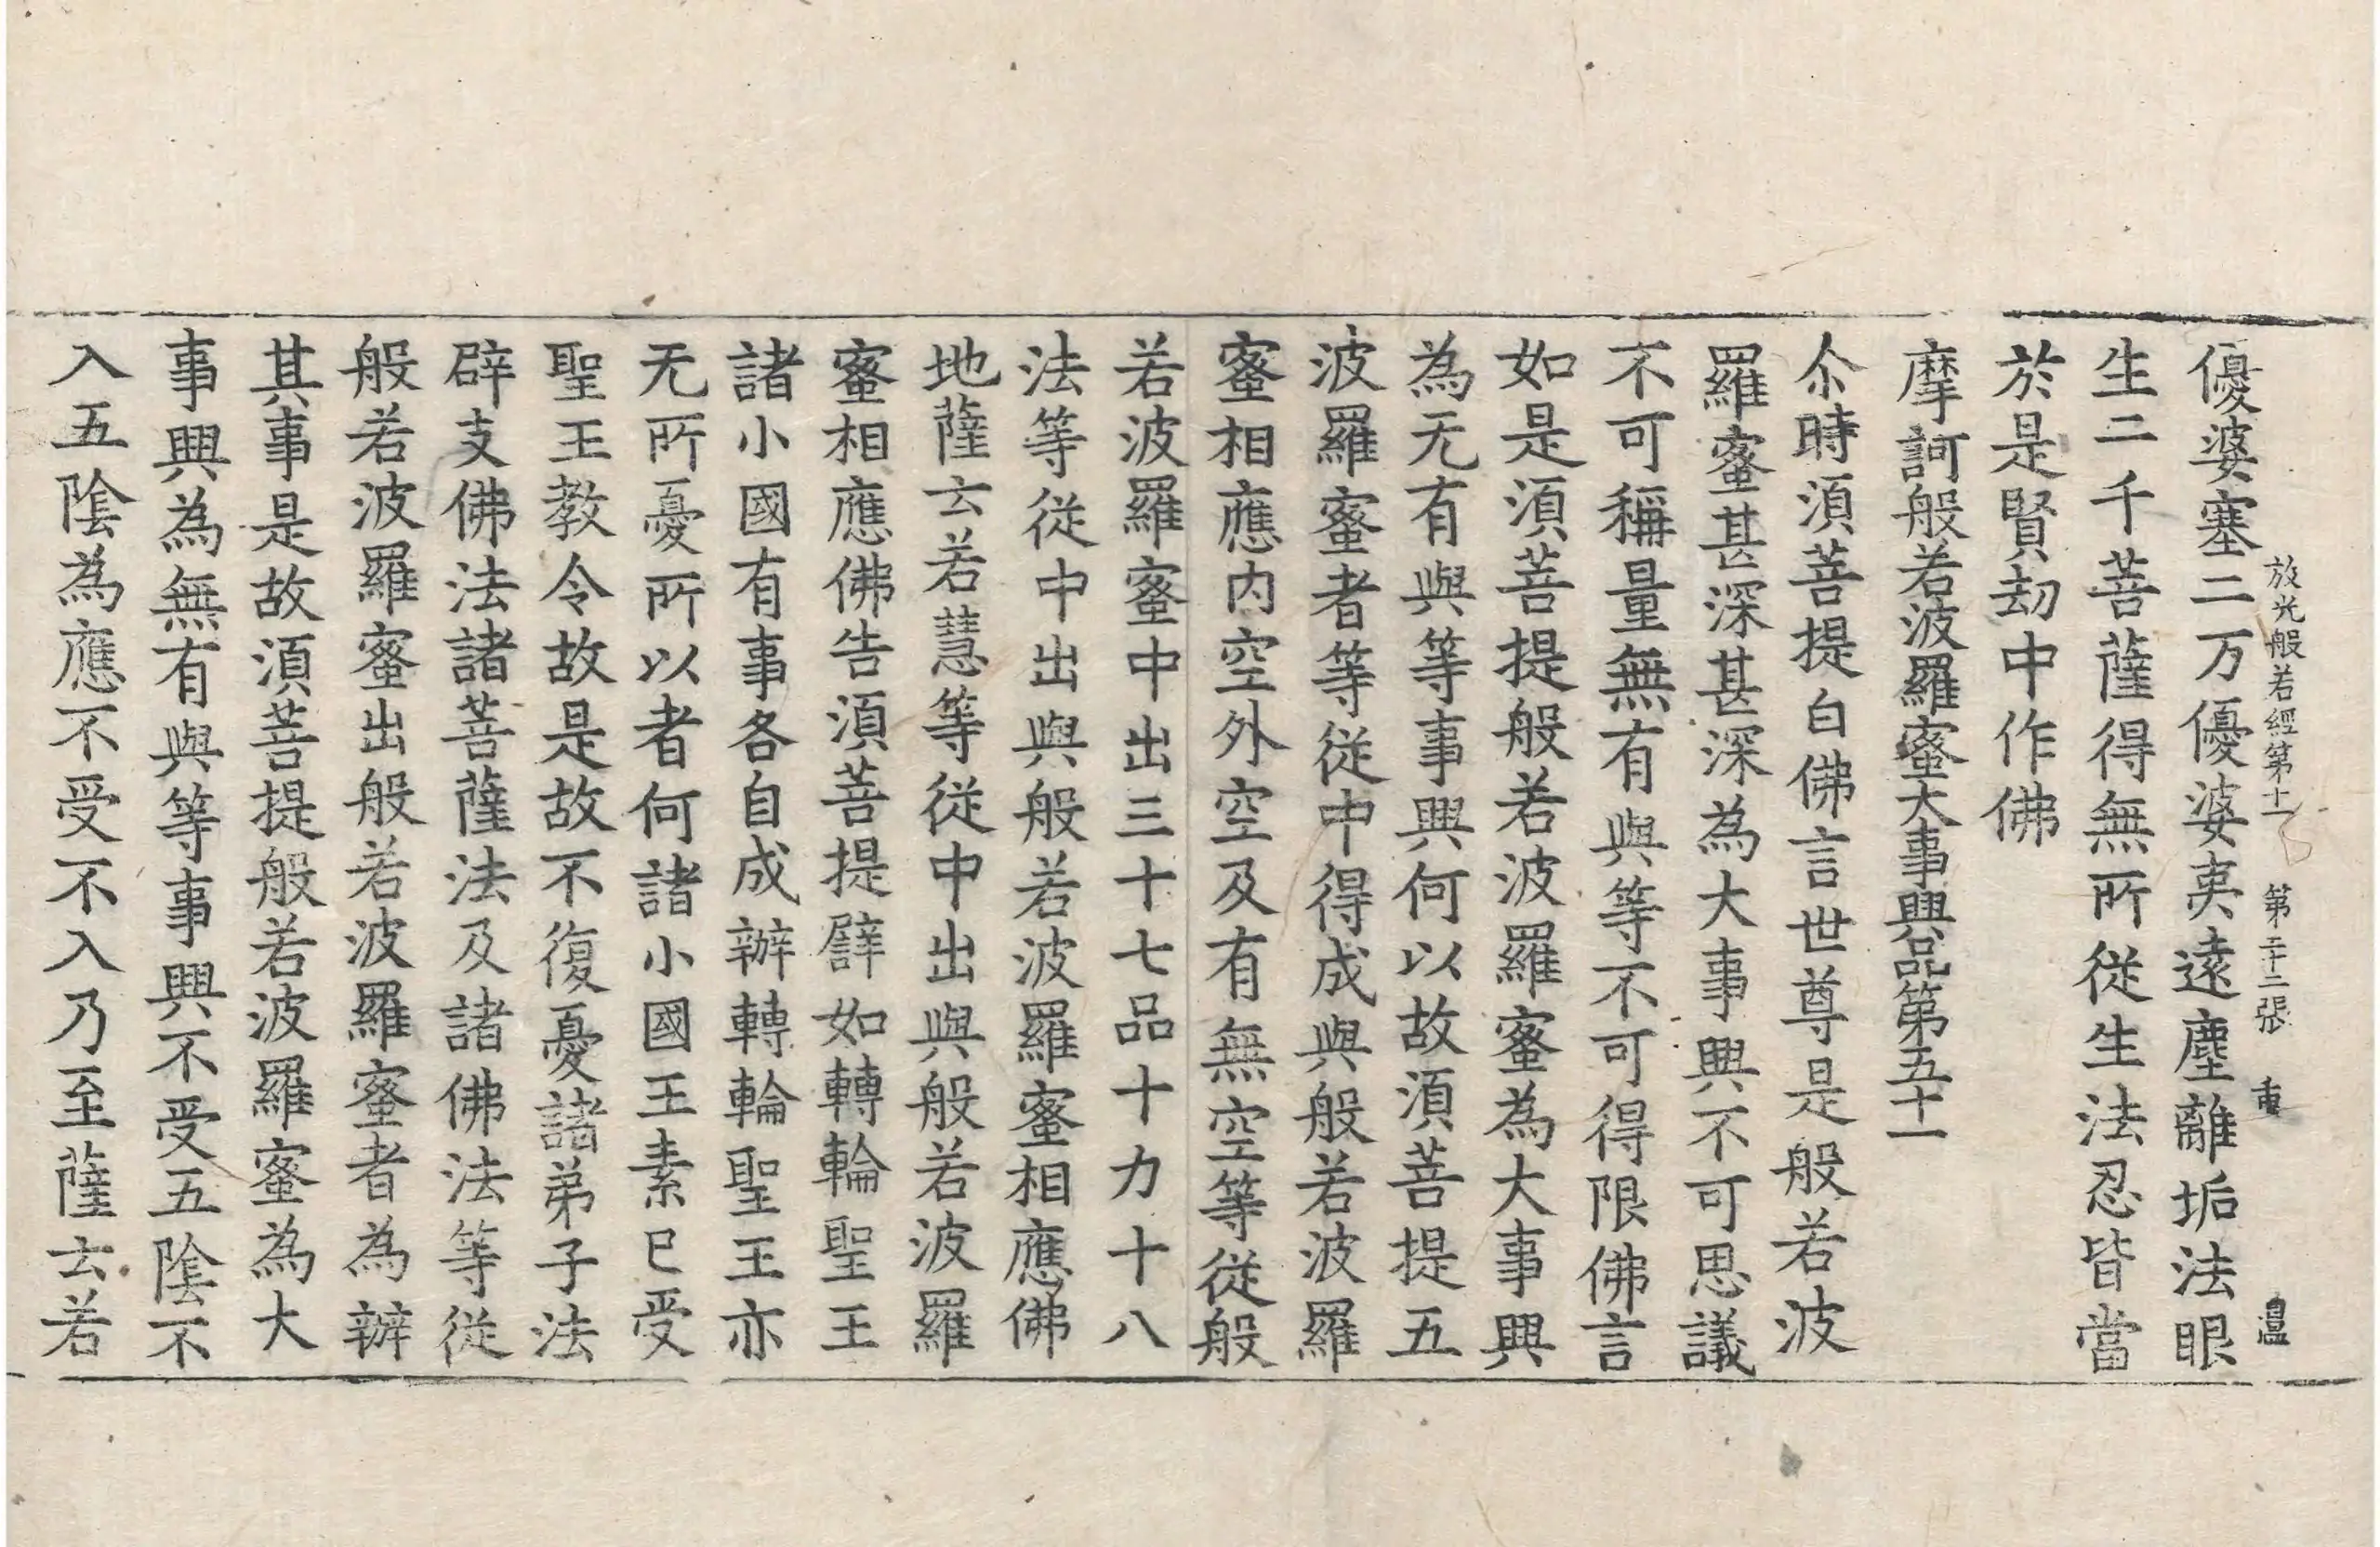 放光般若經第十一 第二十二張 重 溫
優婆塞二万優婆夷遠塵離垢法眼
生二千菩薩得無所從生法忍皆當
於是賢劫中作佛
摩訶般若波羅蜜大事興品第五十一
尒時湏菩提白佛言世尊是般若波
羅蜜甚深甚深為大事興不可思議
不可稱量無有與等不可得限佛言
如是湏菩提般若波羅蜜為大事興
為无有與等事興何以故湏菩提五
波羅蜜者等從中得成與般若波羅
蜜相應内空外空及有無空等從般
若波羅蜜中出三十七品十力十八
法等從中出與般若波羅蜜相應佛
地薩云若慧等從中出與般若波羅
蜜相應佛告湏菩提譬如轉輪聖王
諸小國有事各自成辦轉輪聖王亦
无所憂所以者何諸小國王素已受
聖王教令故是故不復憂諸弟子法
辟支佛法諸菩薩法及諸佛法等從
般若波羅蜜出般若波羅蜜者為辦
其事是故湏菩提般若波羅蜜為大
事興為無有與等事興不受五陰不
入五陰為應不受不入乃至薩云若